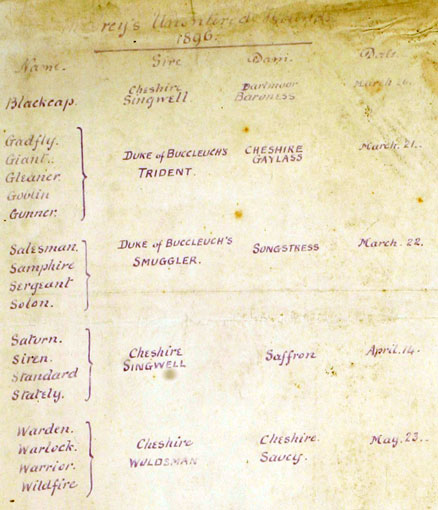 Unentered Hounds
1896.
Name. Sire Dam. Date.
Blackcap. Cheshire Singwell Dartmoor Baroness March 26.
Gadfly.
Giant.
Gleaner.
Goblin
Gunner.
Duke of Buccleuch's
TRIDENT.
CHESHIRE
GAYLASS
March. 21.
Salesman.
Samphire
Sergeant
Solon.
Duke of Buccleuch's
SMUGGLER.
SONGSTRESS
March. 22.
Saturn.
Siren.
Standard
Stately.
Cheshire
SINGWELL
Saffron
April. 14.
Warden.
Warlock.
Warrior.
Wildfire
Cheshire
WOLDSMAN
Cheshire.
Saucy.
May. 23.